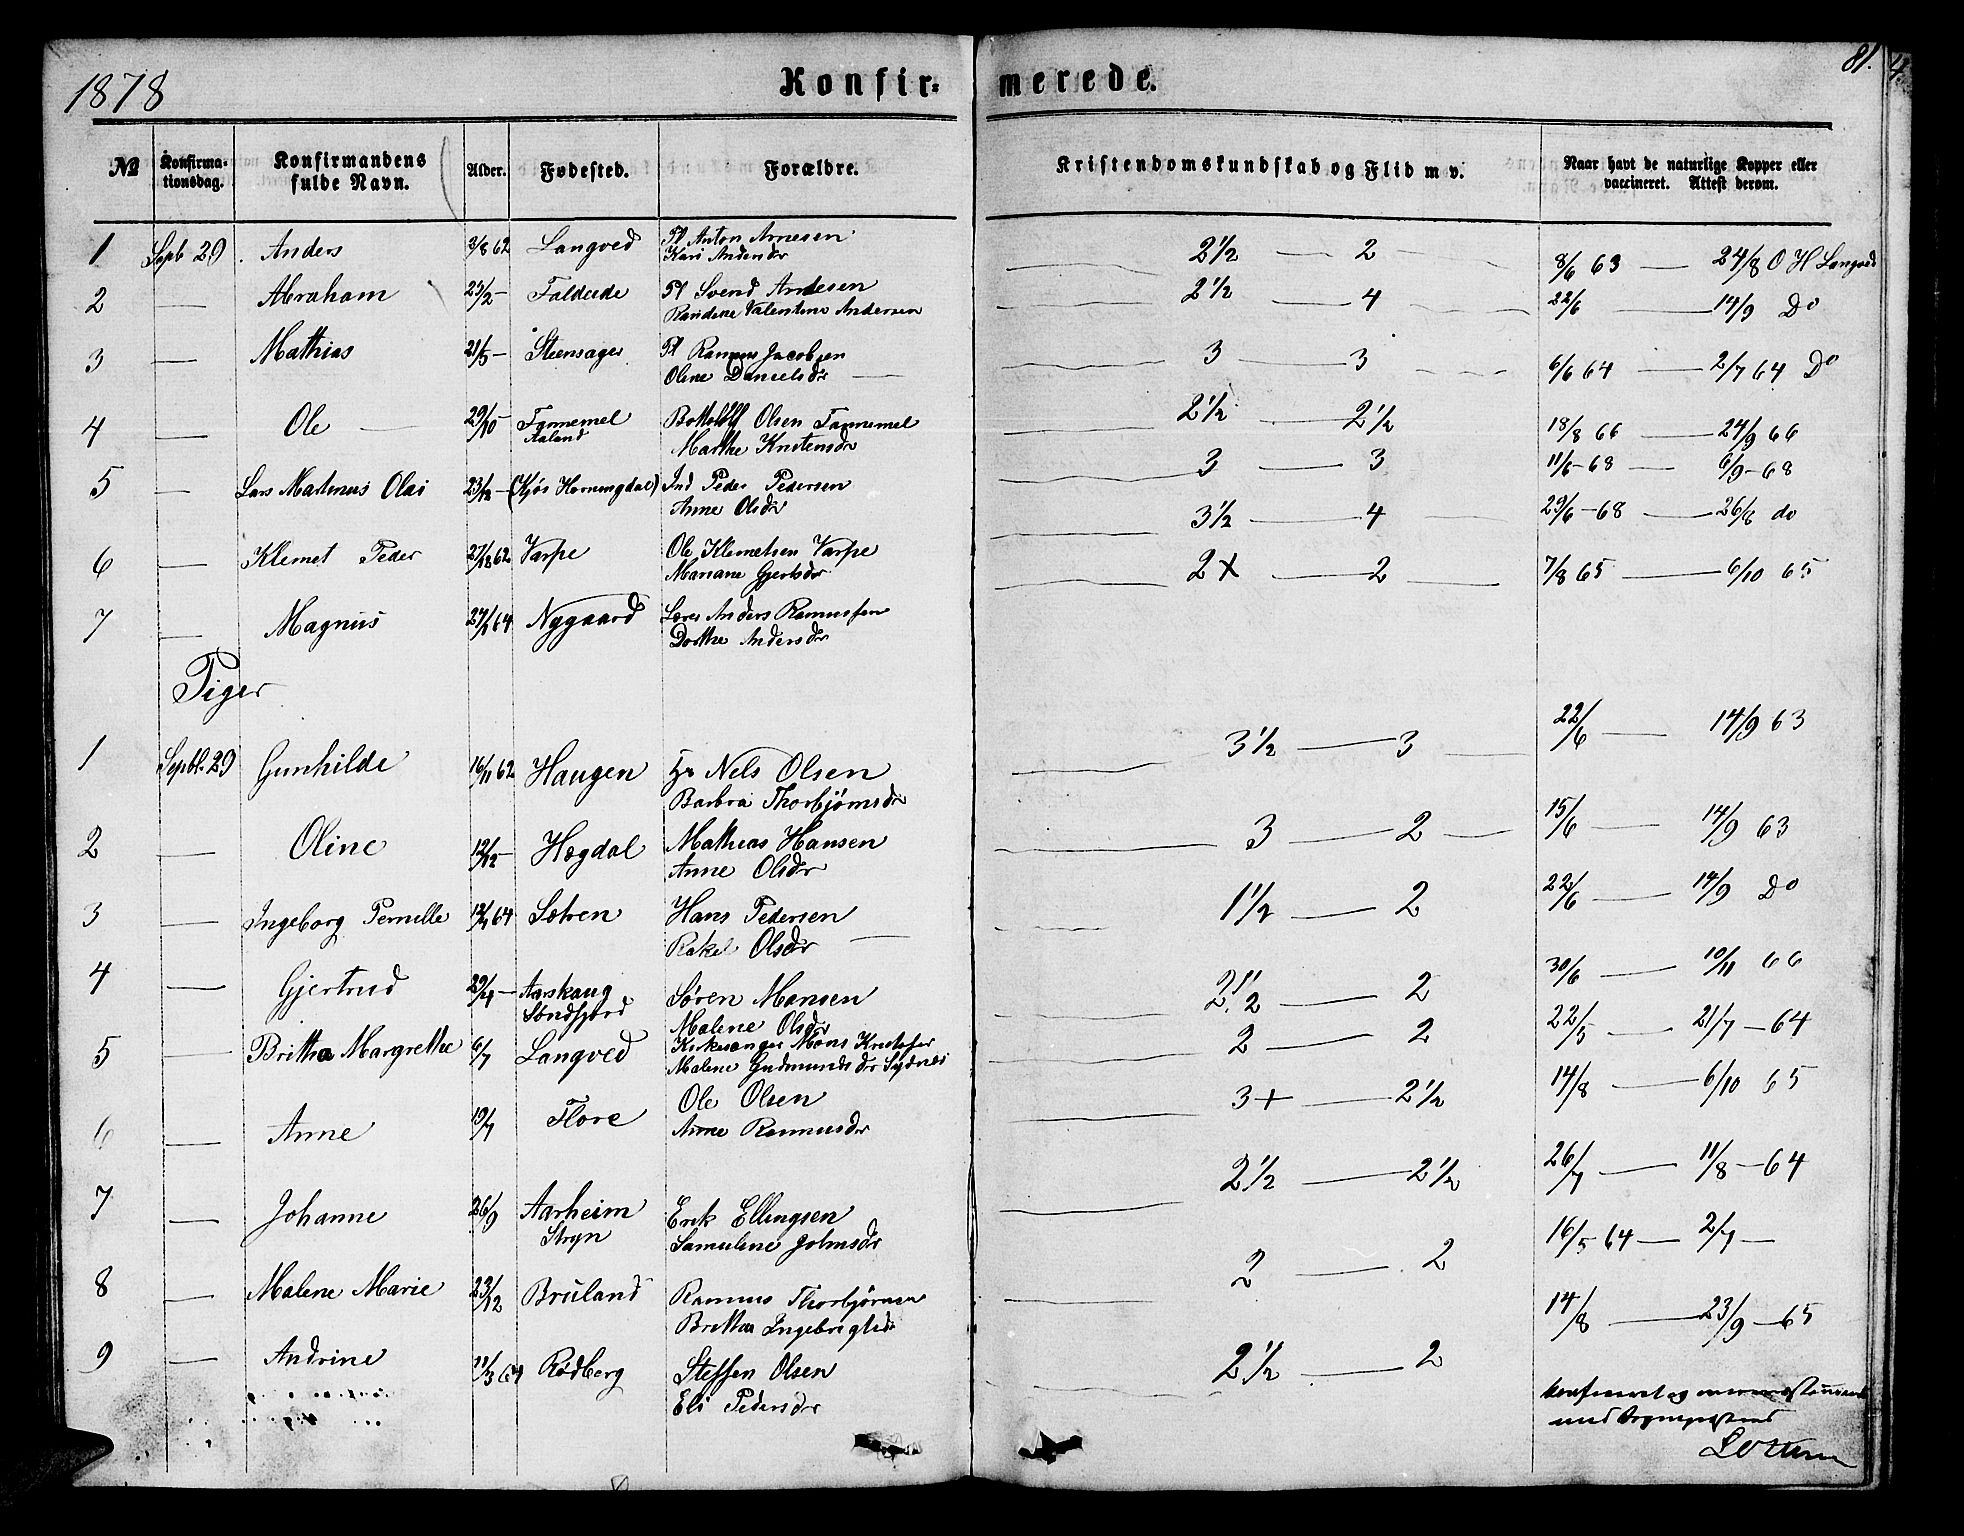 1878
Konfir- merede.
81.
№ Konfirma-tionsdag. Konfirmandens fulde Navn. Alder. Fødested. Forældre. Kristendomskundskab og Flid m v. Naar havt de naturlige Kopper eller vaccineret. Attest derom.
1 Sept 29. Anders 3/8 62 Langved Pl Anton Arnesen 2 1/2 — 2 8/6 63 — 24/8 O H Langved
Kari Andersdr
2 — Abraham 23/2 — Faldeide Pl Svend Andersen 2 1/2 — 4 22/6 14/9 Do
Randine Valentine Andersen
3 — Mathias 21/5 — Steensager Pl Rasmus Jacobsen 3 — 3 6/6 64 — 2/7 64 Do
Oline Danielsdr —
4 — Ole — 29/10 — Tonnemel Bottolf Olsen Tannemel 2 1/2 — 2 1/2 18/8 66 — 24/9 66
Aaland Marthe Knutensdr
5 — Lars Martinus Olai 23/12 — (Kjøs Horningdal) Ind Peder Pedersen 3 — 3 11/6 - 68 — 6/9 - 68
Anne Olsdr
3 1/2 — 4 29/6 - 68 — 26/8 do
6 — Klemet Peder 27/8 62 Varpe Ole Klemetsen Varpe
Mariane Gjertsdr
2 + — 2 7/8 65 — 6/10 65
7 — Magnus 27/1 64 Nygaard Lærer Anders Rasmussen
Dorthe Andersdr
Piger
1 Septbr. 29 Gunhilde 16/11 62 Haugen Nels Olsen 3 1/2 — 3 22/6 — 14/9 63
Barbra Thorbjørnsdr
2 — Oline 12/12 — Hogdal Mathias Hansen 3 — 2 15/6 — 14/9 63
Anne Olsdr
3 — Ingeborg Pernille 12/4 64 Sætren Hans Pedersen 1 1/2 — 2 22/6 — 14/9 Do
Rakel Olsdr —
4 — Gjertrud 29/4 — Aarskaug Søren Monsen 2 1/2 — 2 30/6 — 10/11 66
Søndfjord Malene Olsdr
5 — Britha Margrethe 6/7 Langved Kirkesanger Mons Knutsen 2 — 2 22/5 — 21/7 — 64
Malene Gudmundsdr Sydnes
6 — Anne 19/7 Flore Ole Olsen 3 + — 2 1/2 14/8 — 6/10 65
Anne Rasmusdr
7 — Johanne 26/9 Aarheim Erik Ellingsen 2 1/2 — 2 1/2 26/7 — 11/8 — 64
Stryn Samuline Johnsdr
8 — Malene Marie 23/12 Bruland Rasmus Thorbjørnsen 2 — 2 16/5 64 — 2/7 —
Britha Ingebrigtsdr
9 — Andrine 11/3 64 Rødberg Steffen Olsen 2 1/2 — 2 14/8 — 23/9 — 65
Eli Pedersdr